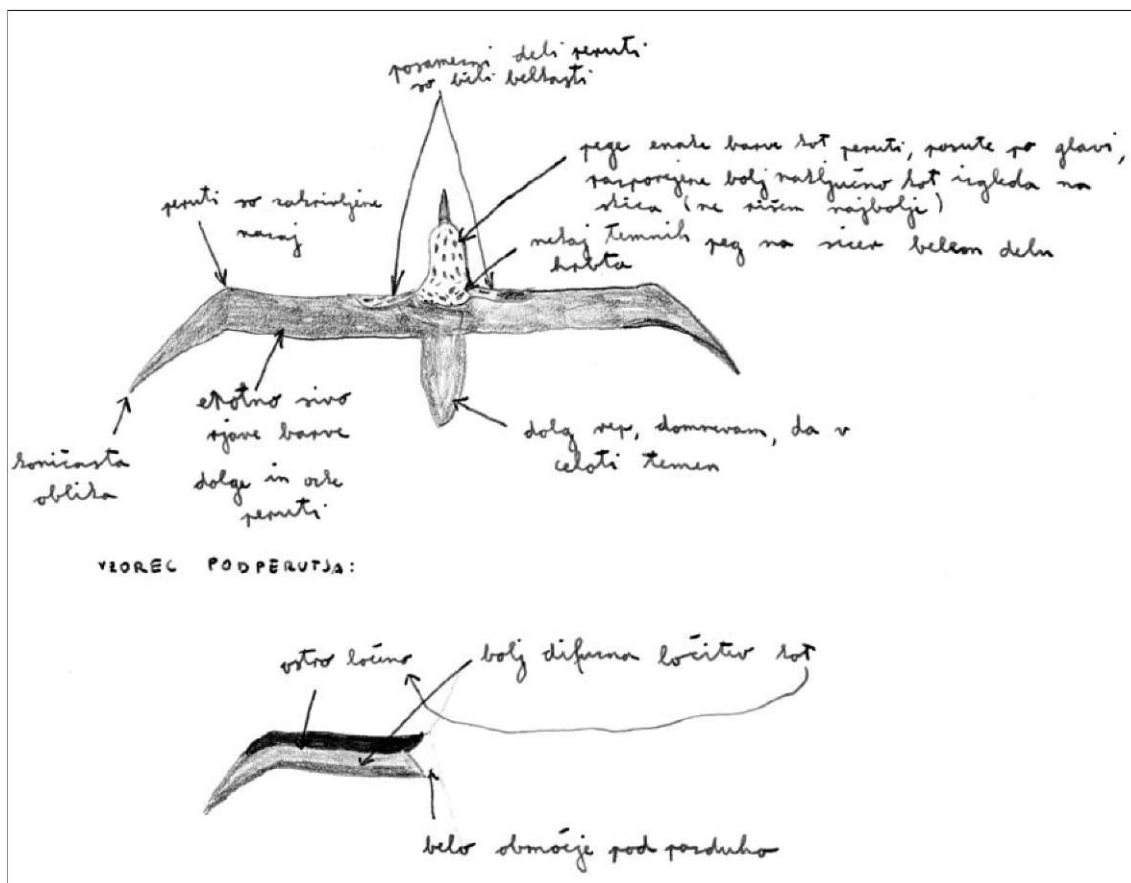 posamezni deli peruti
so bili belkasti
pege enake barve kot peruti, posute po glavi,
razporejene bolj naključno kot izgleda na
skica (ne rišem najbolje)
nekaj temnih peg na sicer belem delu
hrbta
peruti so zakrivljene
nazaj
enotno sivo
rjave barve
dolge in ozke
peruti
koničasta
oblika
dolg rep, domnevam, da v
celoti temen
VZOREC PODPERUTJA:
ostro ločeno
bolj difuzna ločitev kot
belo območje pod pazduho